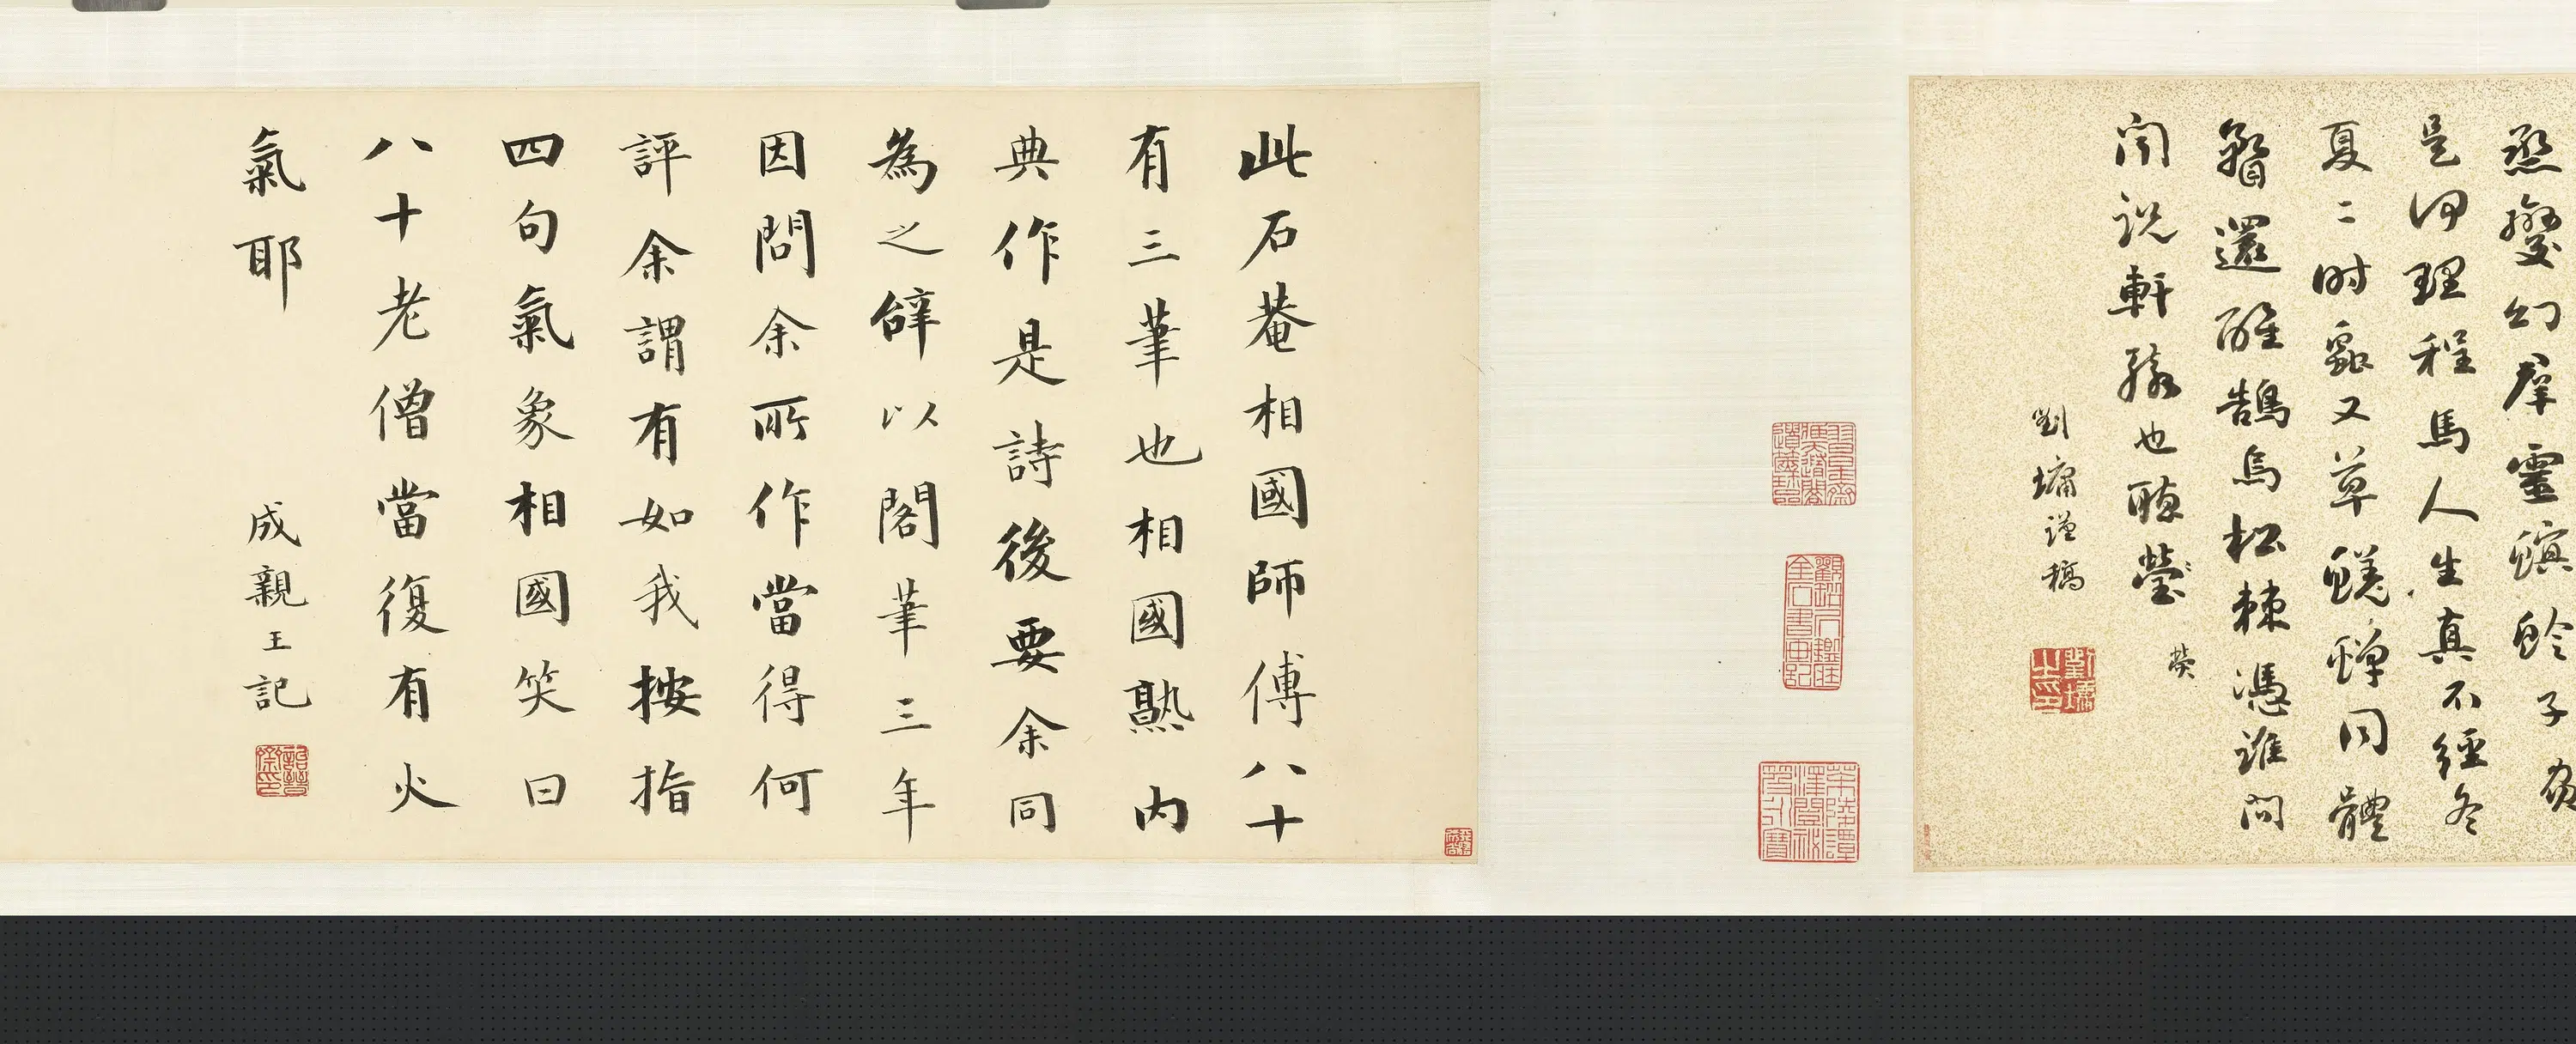 烝變幻群靈螾蛉子負
是何理程馬人生真不經冬
夏二時瓠又草蟋蟀同體
簪還醒鵠烏松棘憑誰問
聞說軒轅也聽瑩
熒
劉墉謹稿
劉墉之印
此石菴相國師傅八十
有三筆也相國熟內
典作是詩後要余同
為之辭以閣筆三年
因問余所作當得何
評余謂有如我按指
四句氣象相國笑曰
八十老僧當復有火
氣耶
成親王記